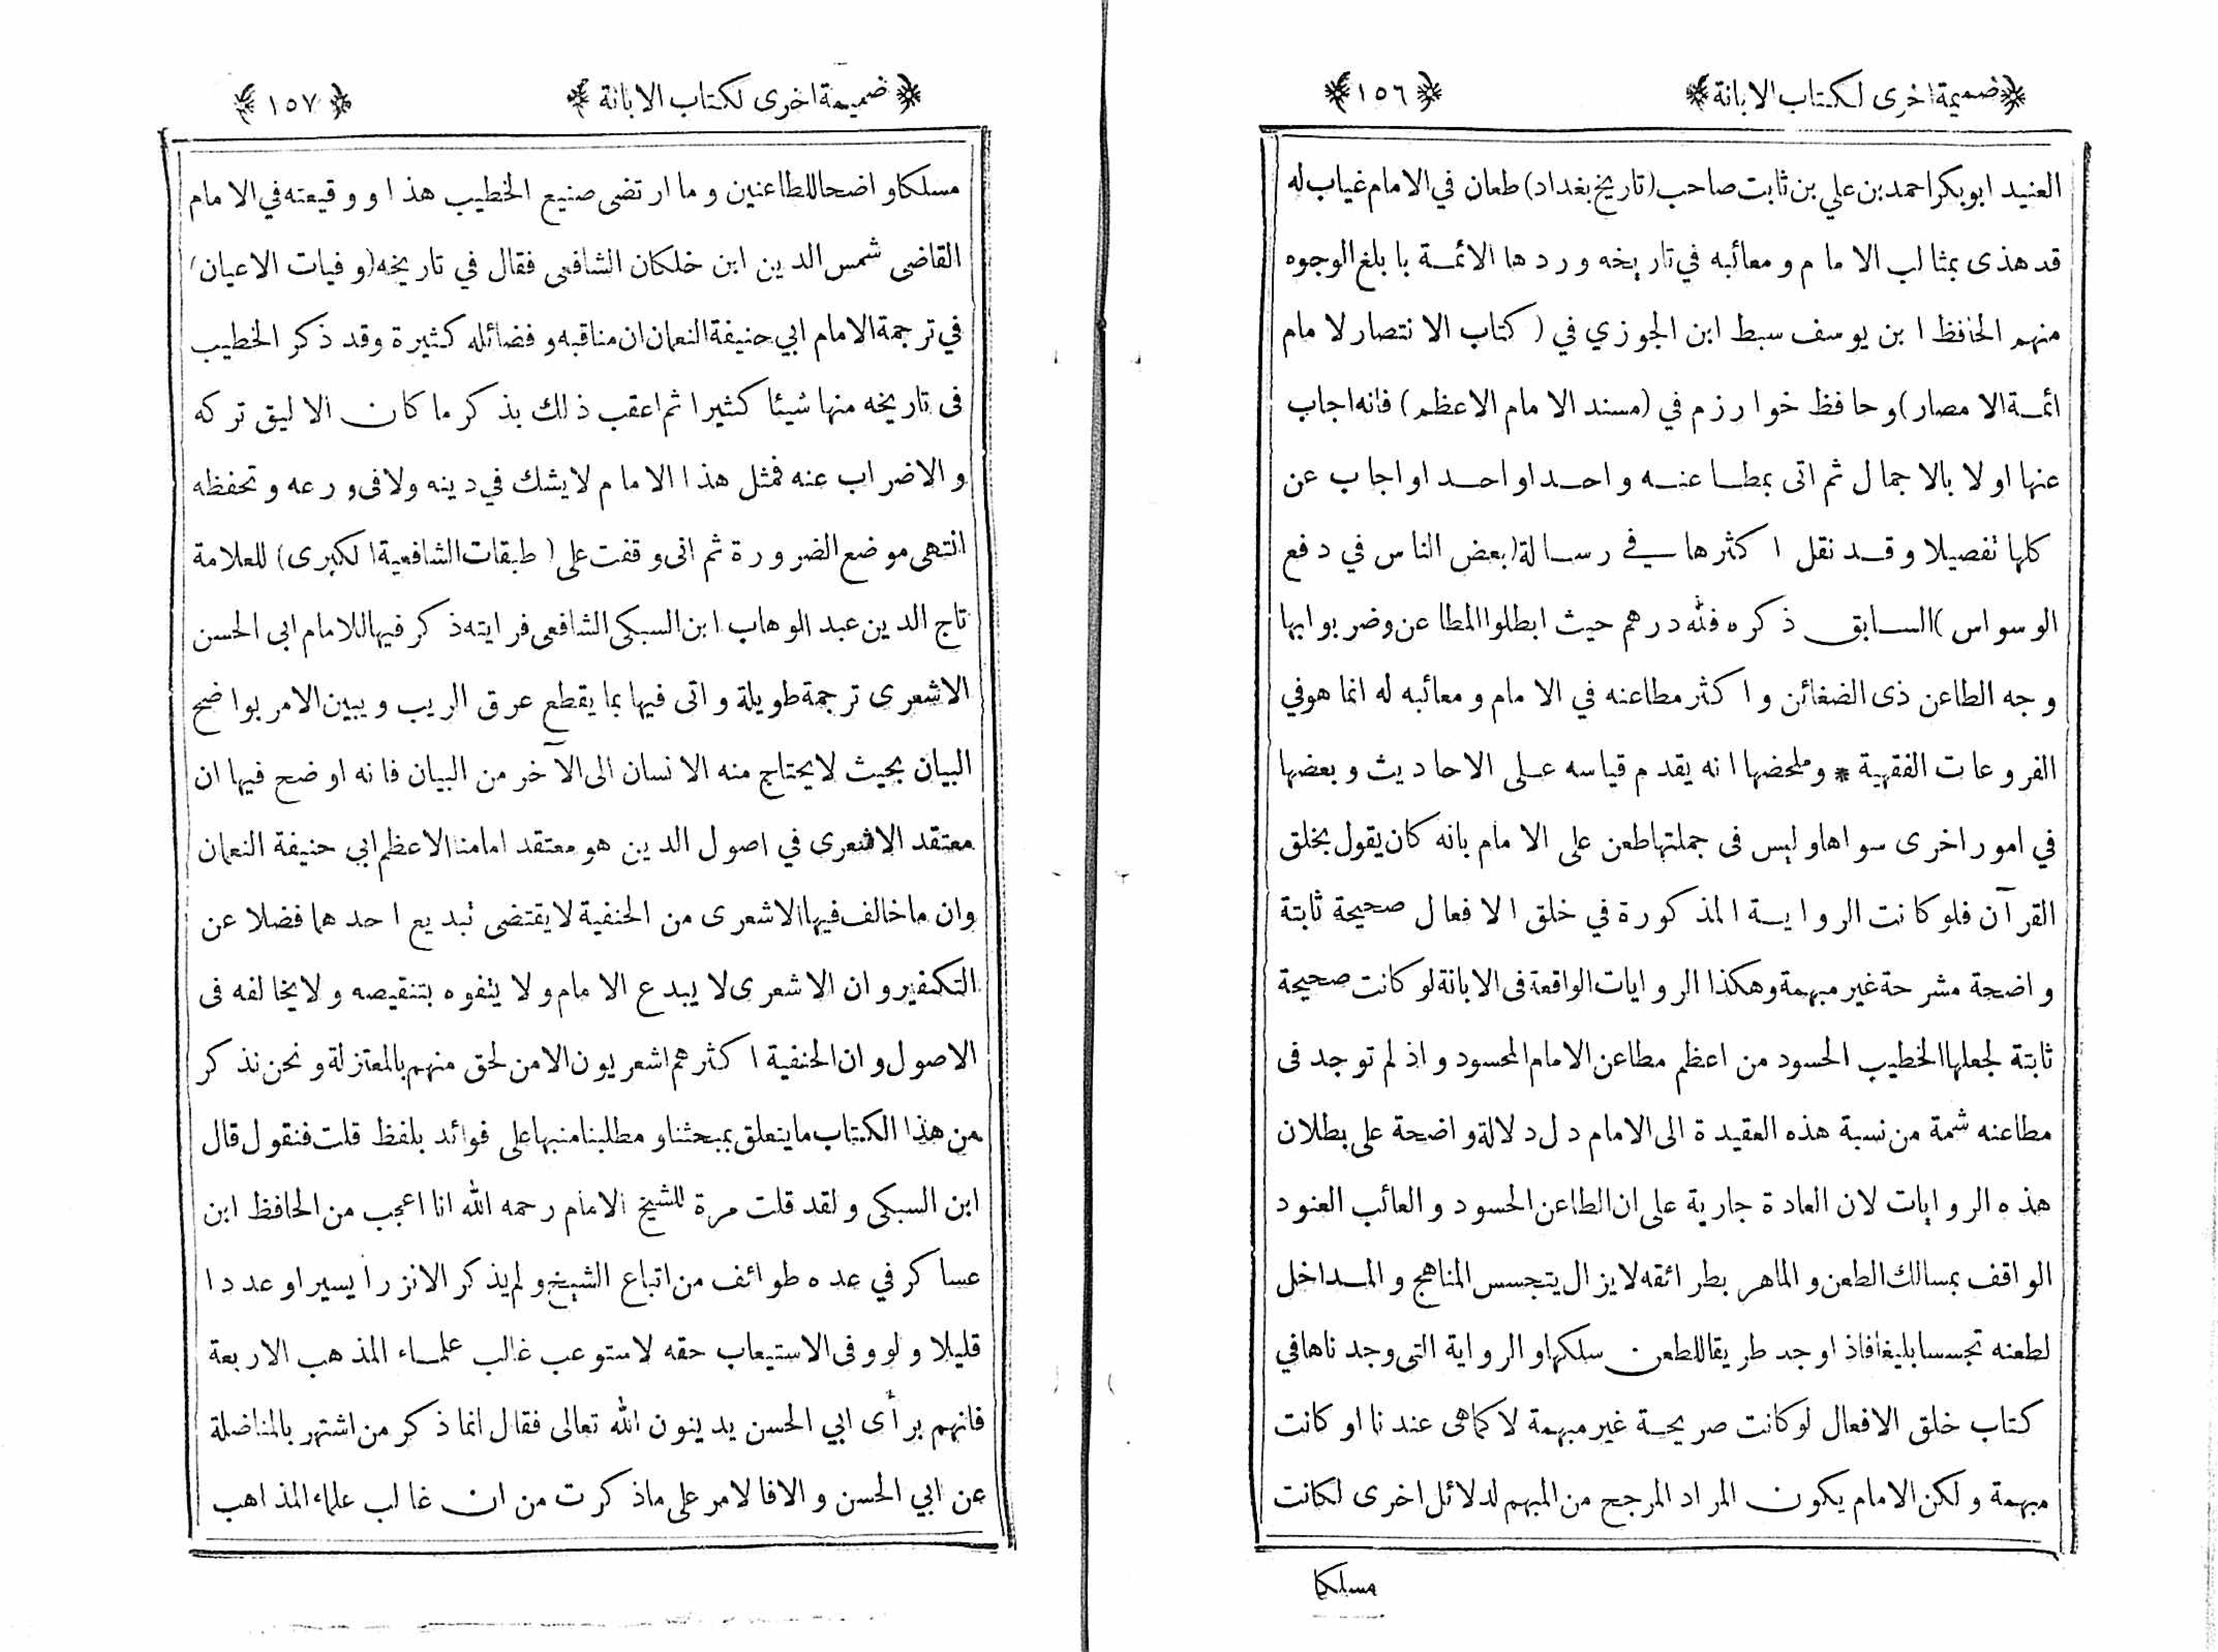 ضميمة اخرى لكتاب الابانة ﴿١٥٦﴾
العنيد ابوبكر احمد بن علي بن ثابت صاحب (تاريخ بغداد) طعان في الامام غياب له
قد هذى بمثالب الامام ومعائبه في تاريخه وردها الائمة بابلغ الوجوه
منهم الحافظ ابن يوسف سبط ابن الجوزي في (كتاب الانتصار لامام
ائمة الامصار) وحافظ خوارزم في (مسند الامام الاعظم) فانه اجاب
عنها اولا بالاجمال ثم اتى بمطاعنه واحدا واحدا واجاب عن
كلها تفصيلا وقد نقل اكثرها في رسالة (بعض الناس في دفع
الوسواس) السابق ذكره فلله درهم حيث ابطلوا المطاعن وضربوا بها
وجه الطاعن ذى الضغائن واكثر مطاعنه في الامام ومعائبه له انما هو في
الفروعات الفقهية * وملخصها انه يقدم قياسه على الاحاديث وبعضها
في امور اخرى سواها وليس فى جملتها طعن على الامام بانه كان يقول بخلق
القرآن فلو كانت الرواية المذكورة في خلق الافعال صحيحة ثابتة
واضحة مشرحة غير مبهمة وهكذا الروايات الواقعة فى الابانة لو كانت صحيحة
ثابتة لجعلها الخطيب الحسود من اعظم مطاعن الامام المحسود واذ لم توجد فى
مطاعنه شمة من نسبة هذه العقيدة الى الامام دل دلالة واضحة على بطلان
هذه الروايات لان العادة جارية على ان الطاعن الحسود والعائب العنود
الواقف بمسالك الطعن والماهر بطرائقه لايزال يتجسس المناهج والمداخل
لطعنه تجسسا بليغا فاذا وجد طريقا للطعن سلكها والرواية التى وجدناها في
كتاب خلق الافعال لو كانت صريحة غير مبهمة لا كما هى عندنا او كانت
مبهمة ولكن الامام يكون المراد المرجح من المبهم لدلائل اخرى لكانت
مسلكا
ضميمة اخرى لكتاب الابانة ﴿١٥٧﴾
مسلكا واضحا للطاعنين وما ارتضى صنيع الخطيب هذا ووقيعته في الامام
القاضى شمس الدين ابن خلكان الشافعى فقال في تاريخه (وفيات الاعيان)
في ترجمة الامام ابي حنيفة النعمان ان مناقبه وفضائله كثيرة وقد ذكر الخطيب
فى تاريخه منها شيئا كثيرا ثم اعقب ذلك بذكر ما كان الاليق تركه
والاضراب عنه فمثل هذا الامام لايشك في دينه ولا فى ورعه وتحفظه
انتهى موضع الضرورة ثم انى وقفت على (طبقات الشافعية الكبرى) للعلامة
تاج الدين عبد الوهاب ابن السبكى الشافعى فرايته ذكر فيها للامام ابى الحسن
الاشعرى ترجمة طويلة واتى فيها بما يقطع عرق الريب ويبين الامر بواضح
البيان بحيث لايحتاج منه الانسان الى الآخر من البيان فانه اوضح فيها ان
معتقد الاشعرى في اصول الدين هو معتقد امامنا الاعظم ابي حنيفة النعمان
وان ما خالف فيها الاشعرى من الحنفية لايقتضى تبديع احدهما فضلا عن
التكفير وان الاشعرى لا يبدع الامام ولا يتفوه بتنقيصه ولا يخالفه فى
الاصول وان الحنفية اكثرهم اشعريون الا من لحق منهم بالمعتزلة ونحن نذكر
من هذا الكتاب ما يتعلق بمبحثنا ومطلبنا منبها على فوائد بلفظ قلت فنقول قال
ابن السبكى ولقد قلت مرة للشيخ الامام رحمه الله انا اعجب من الحافظ ابن
عساكر في عده طوائف من اتباع الشيخ ولم يذكر الا نزرا يسيرا وعددا
قليلا ولو وفى الاستيعاب حقه لاستوعب غالب علماء المذهب الاربعة
فانهم برأى ابي الحسن يدينون الله تعالى فقال انما ذكر من اشتهر بالمناضلة
عن ابي الحسن والا فالامر على ماذكرت من ان غالب علماء المذاهب